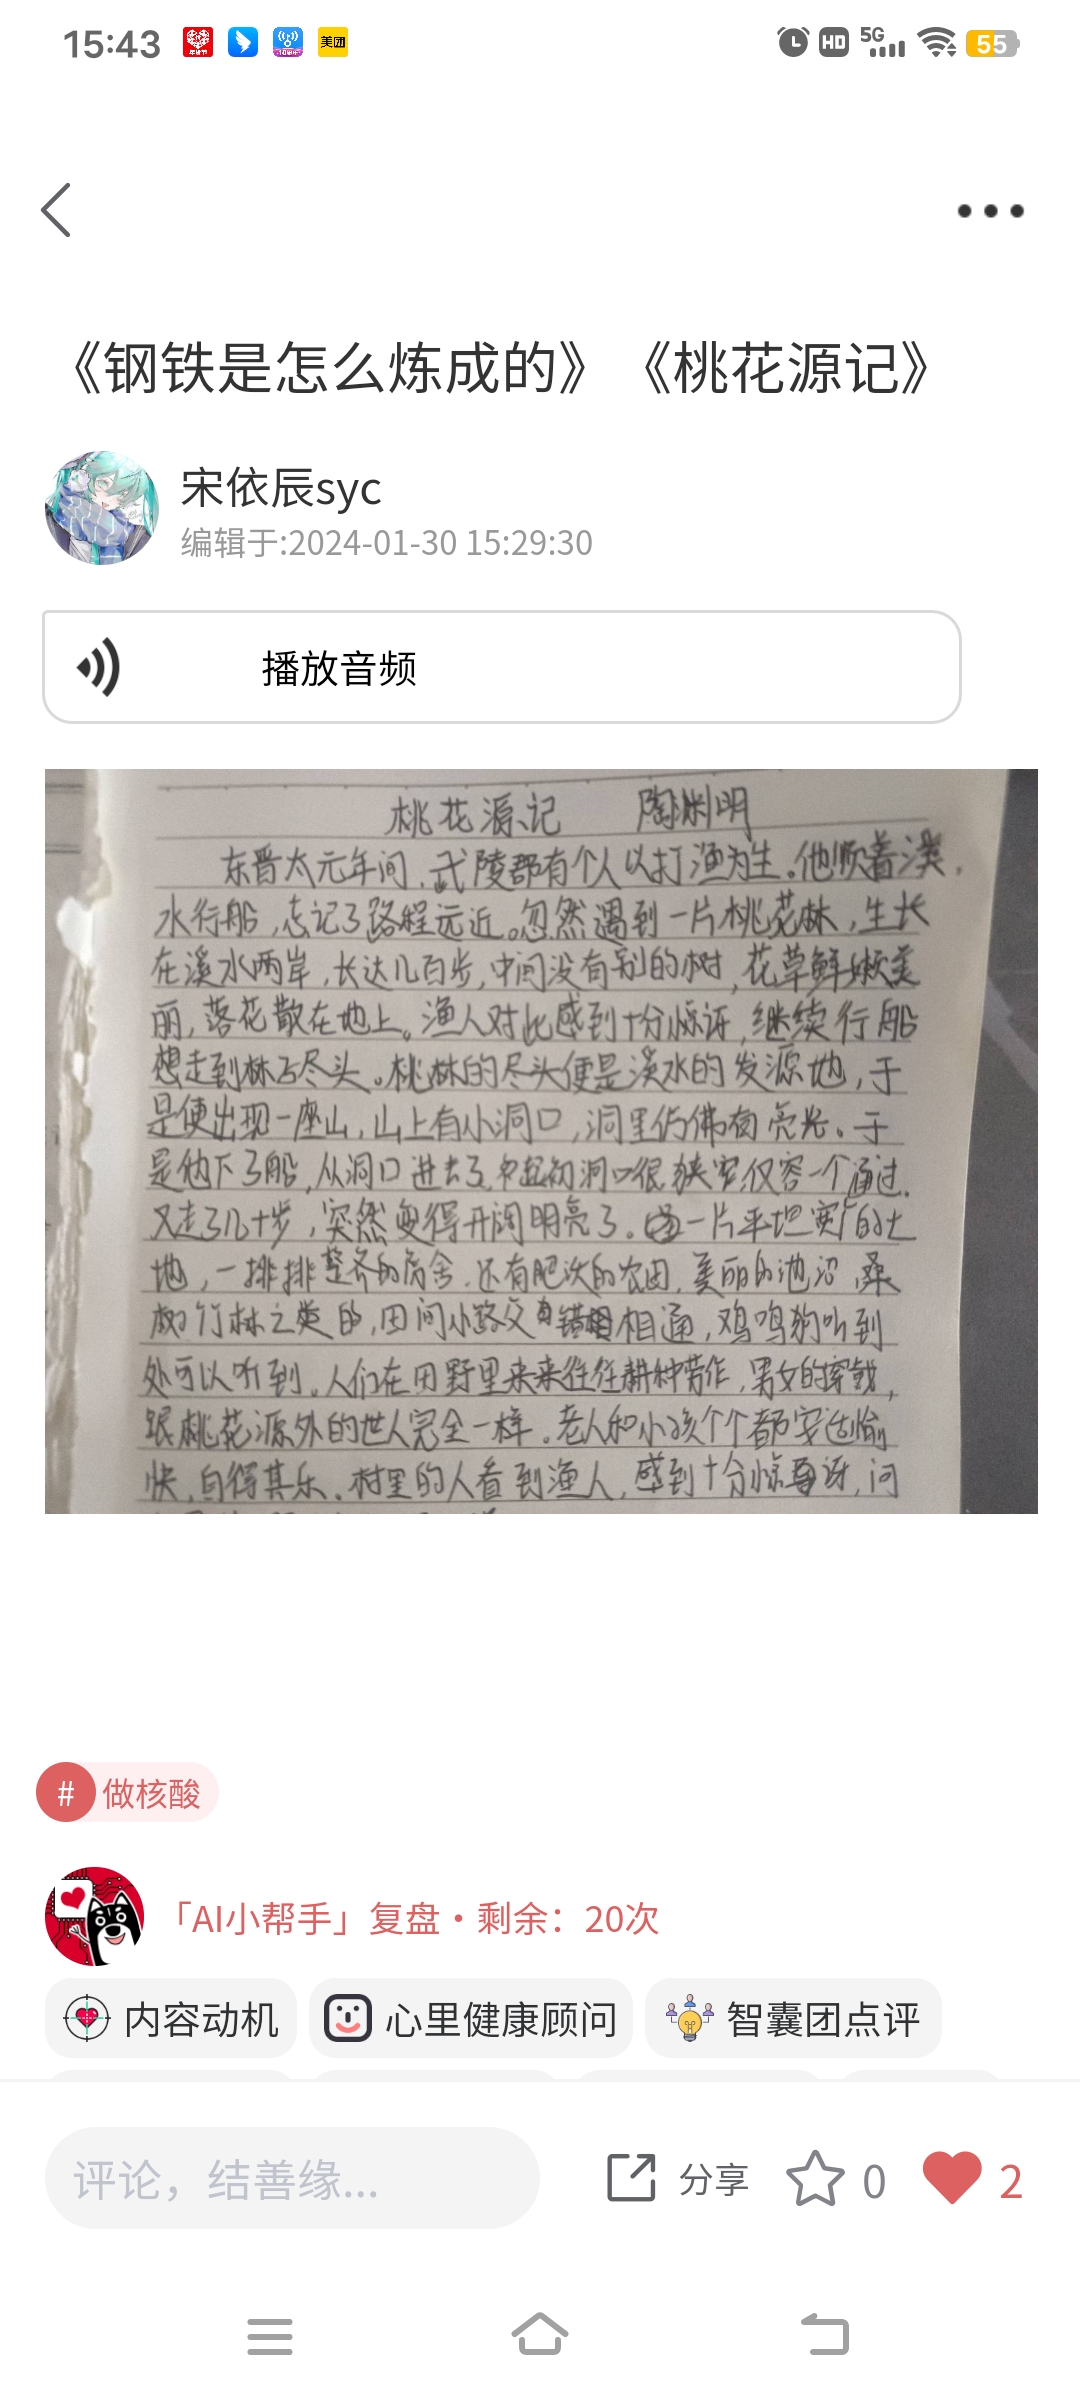 15:43
美团
HD
5G
55
《钢铁是怎么炼成的》《桃花源记》
宋依辰syc
编辑于:2024-01-30 15:29:30
播放音频
桃花源记 陶渊明
东晋太元年间,武陵郡有个人以打渔为生。他顺着溪
水行船,忘记了路程远近。忽然遇到一片桃花林,生长
在溪水两岸,长达几百步,中间没有别的树,花草鲜嫩美
丽,落花散在地上。渔人对此感到十分惊讶,继续行船
想走到林子尽头。桃林的尽头便是溪水的发源地,于
是便出现一座山,山上有小洞口,洞里仿佛有亮光。于
是他下了船,从洞口进去了,起初洞口很狭窄仅容一个通过.
又走了几十步,突然变得开阔明亮了。一片平坦宽广的土
地,一排排整齐的房舍.还有肥沃的农田,美丽的池沼,桑
树竹林之类的,田间小路交错相通,鸡鸣狗叫到
处可以听到。人们在田野里来来往往耕种劳作,男女的穿戴,
跟桃花源外的世人完全一样。老人和小孩个个都安适愉
快,自得其乐。村里的人看到渔人,感到十分惊讶,问
# 做核酸
「AI小帮手」复盘·剩余：20次
内容动机
心里健康顾问
智囊团点评
评论，结善缘...
分享
0
2